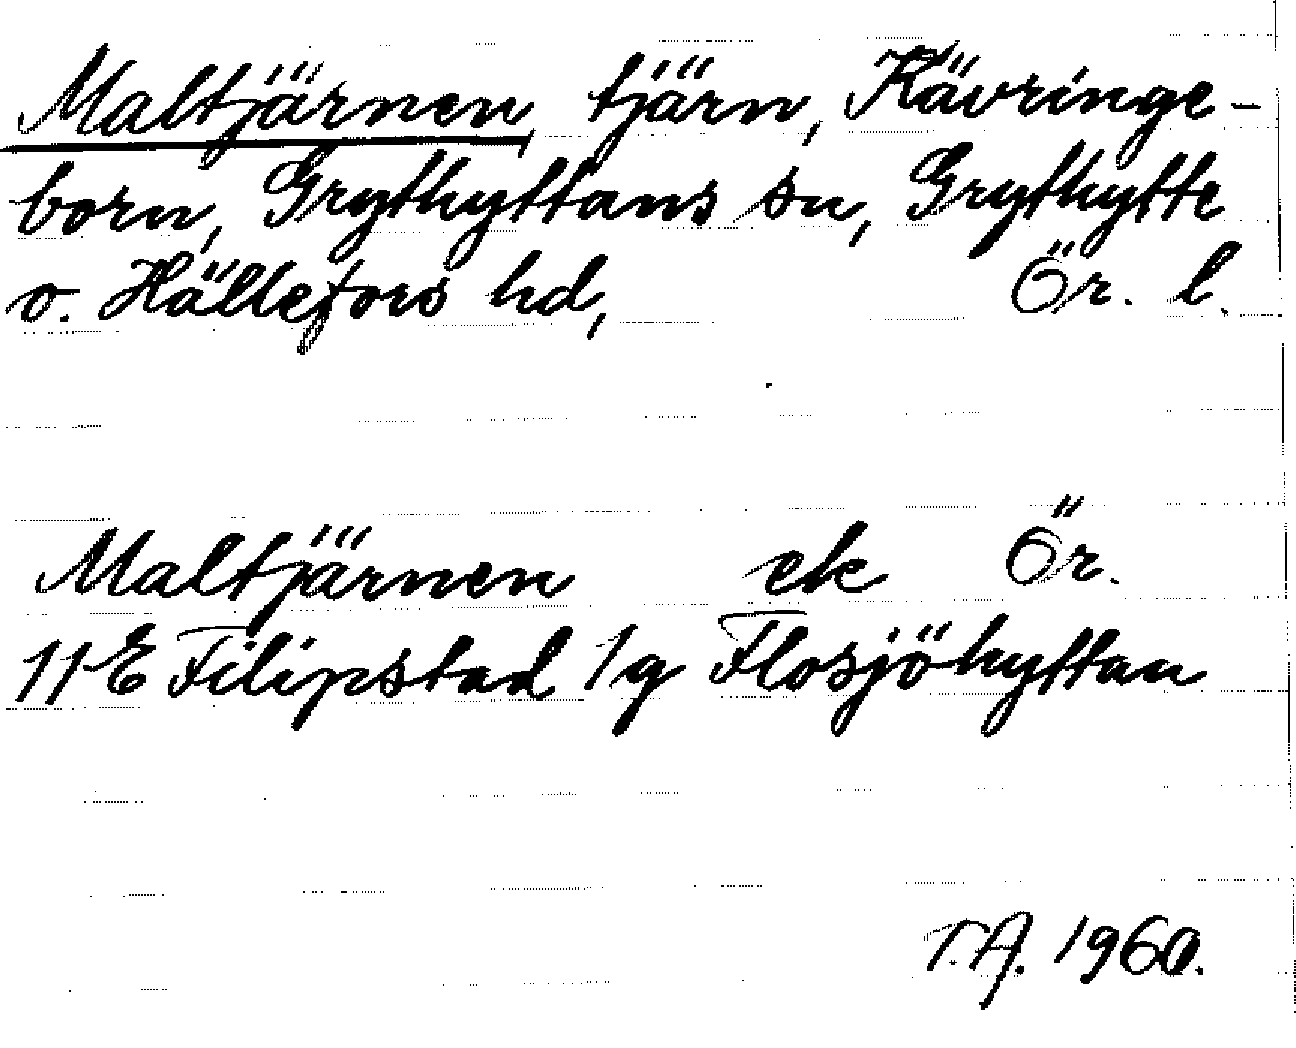 Maltjärnen, tjärn, Kävringe-
born, Grythyttans sn, Grythytte
o. Hällefors hd, Ör. l.
Maltjärnen ek Ör.
11E Filipstad 1g Flosjöhyttan
T.A. 1960.